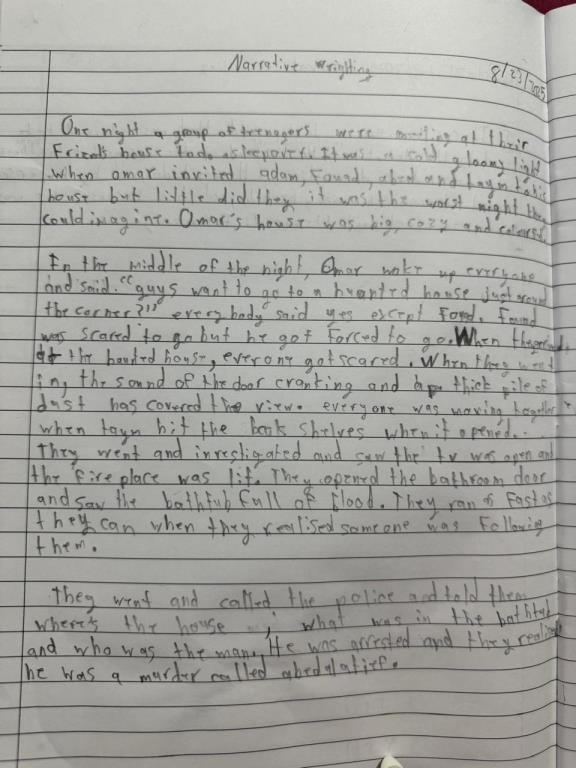 Narrative wrighting
8/23/2025
One night a group of teenagers were meeting at their
Friends house to do a sleepover. It was a cold gloomy light
when omar invited adam, Fouad, abed and taym to his
house but little did they it was the worst night they
could imagine. Omar's house was big, cozy and
In the middle of the night, Omar woke up everyone
and said. "guys want to go to a huanted house just around
the corner?!" everybody said yes except Foud. Fouad
was scared to go but he got forced to go. When they
at the hanted house, everone got scared. When they went
in, the sound of the door cranting and a thick pile of
dust has covered the view. everyone was moving together
when taym hit the book shelves when it opened..
They went and investigated and saw the tv was open and
the fireplace was lit. They opened the bathroom door
and saw the bathtub full of blood. They ran as fast as
they can when they realised someone was following
them.
They went and called the police and told them
where's the house , what was in the bathtub
and who was the man. He was arrested and they realised
he was a murder called abedalatief.